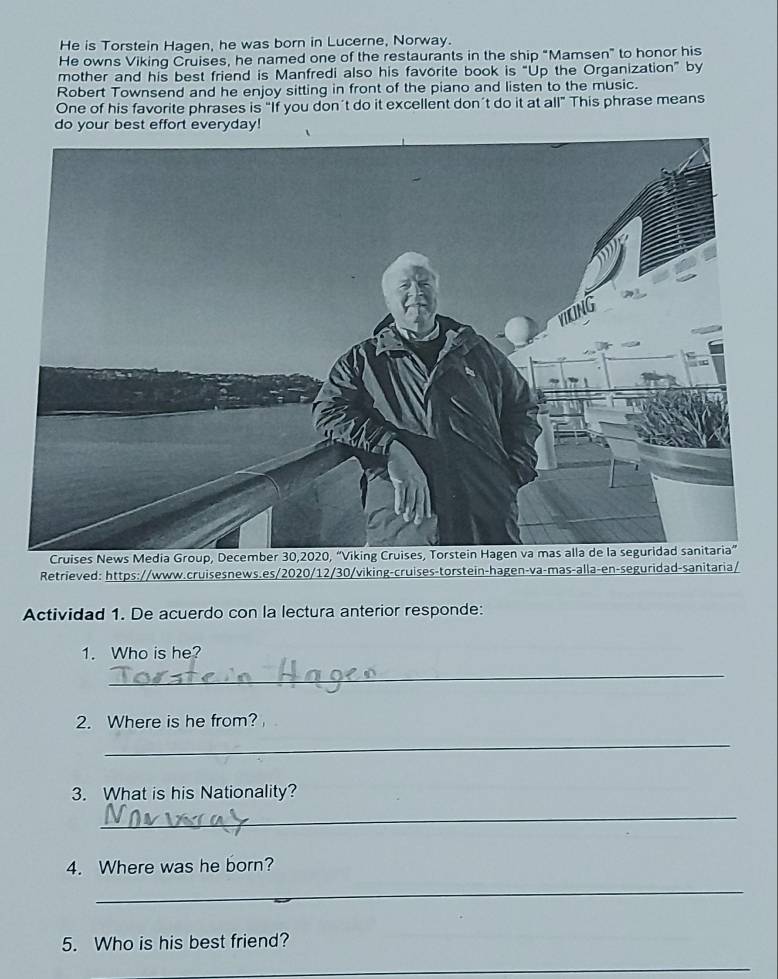 He is Torstein Hagen, he was born in Lucerne, Norway.
He owns Viking Cruises, he named one of the restaurants in the ship “Mamsen” to honor his
mother and his best friend is Manfredi also his favorite book is “Up the Organization” by
Robert Townsend and he enjoy sitting in front of the piano and listen to the music.
One of his favorite phrases is “If you don´t do it excellent don´t do it at all” This phrase means
do your best effort everyday!
VIKING
Cruises News Media Group, December 30,2020, “Viking Cruises, Torstein Hagen va mas alla de la seguridad sanitaria”
Retrieved: https://www.cruisesnews.es/2020/12/30/viking-cruises-torstein-hagen-va-mas-alla-en-seguridad-sanitaria/
Actividad 1. De acuerdo con la lectura anterior responde:
1. Who is he?
Torstein Hagen
2. Where is he from?
3. What is his Nationality?
Norway
4. Where was he born?
5. Who is his best friend?